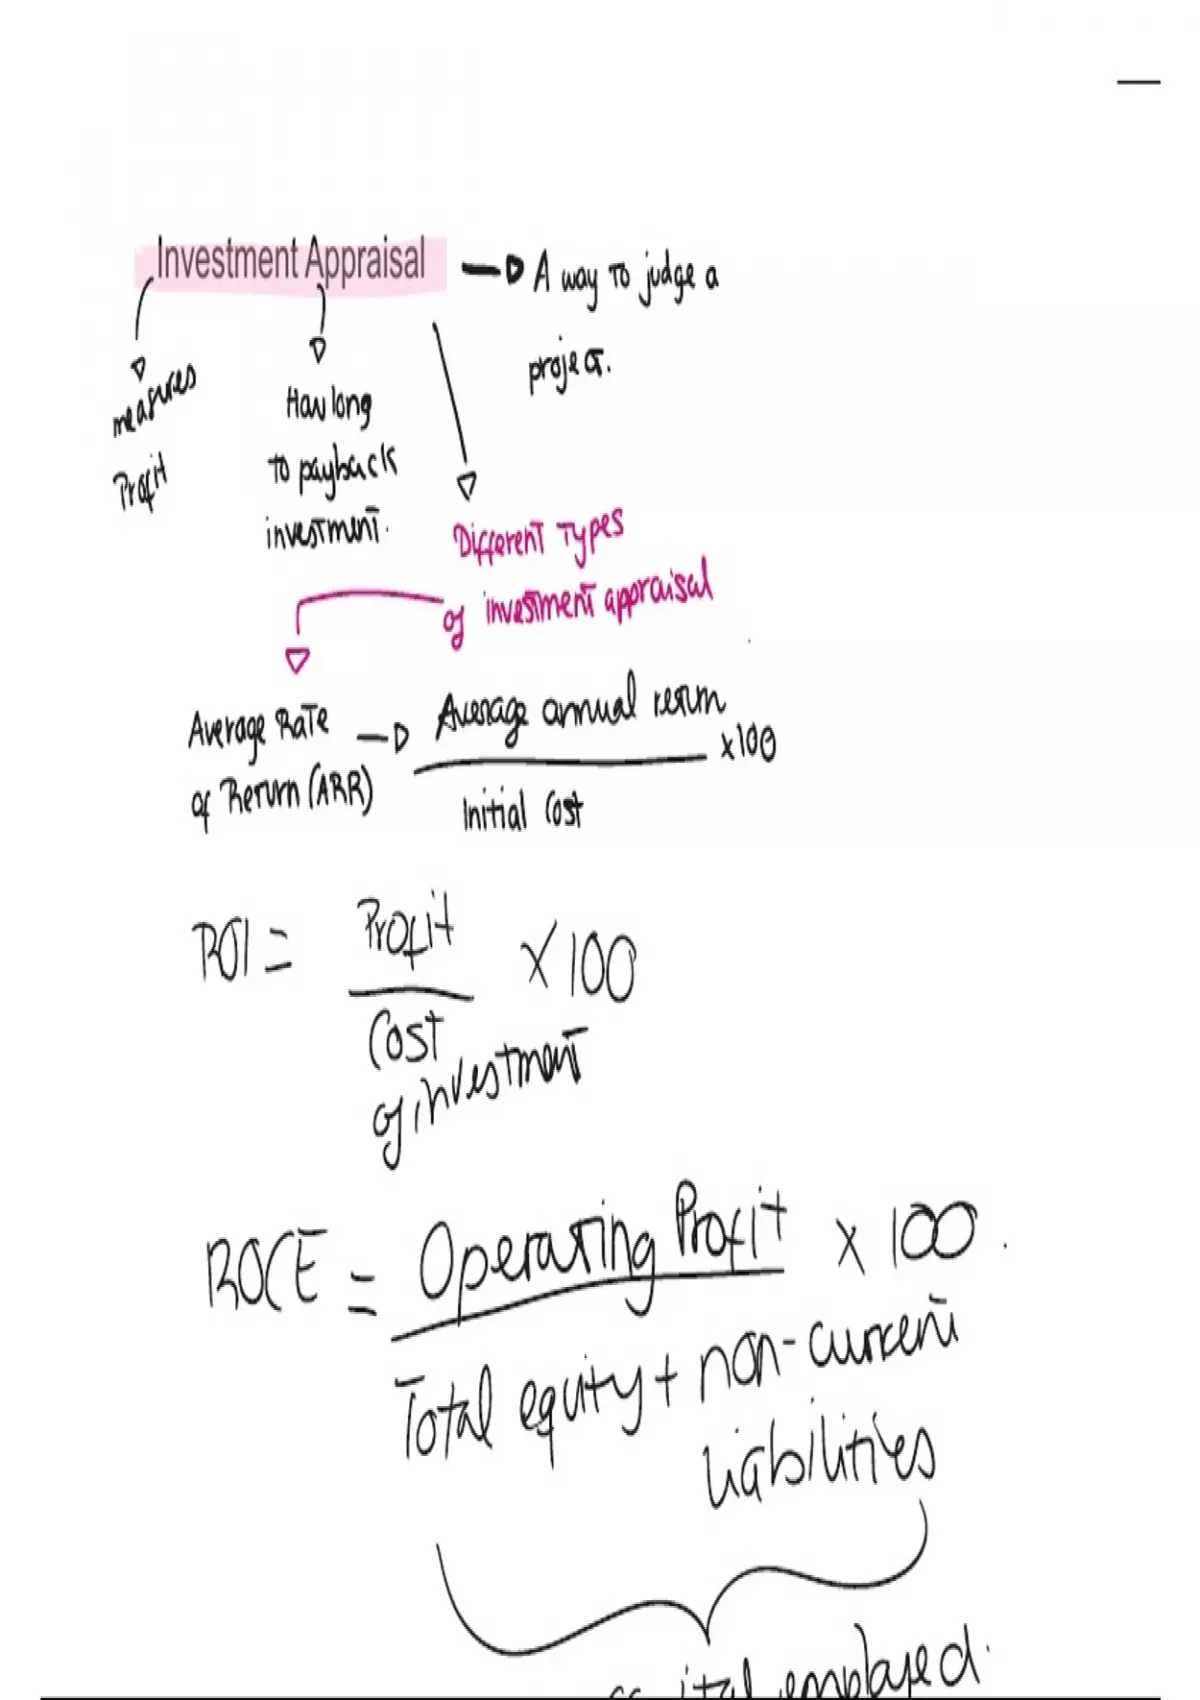 Investment Appraisal → A way to judge a
project.
measures
Profit
How long
to payback
investment.
Different types
of investment appraisal
Average Rate
of Return (ARR) → Average annual return
x100
Initial Cost
ROI = Profit x 100
Cost
of investment
ROCE = Operating Profit x 100.
Total equity + non-current
liabilities
capital employed.